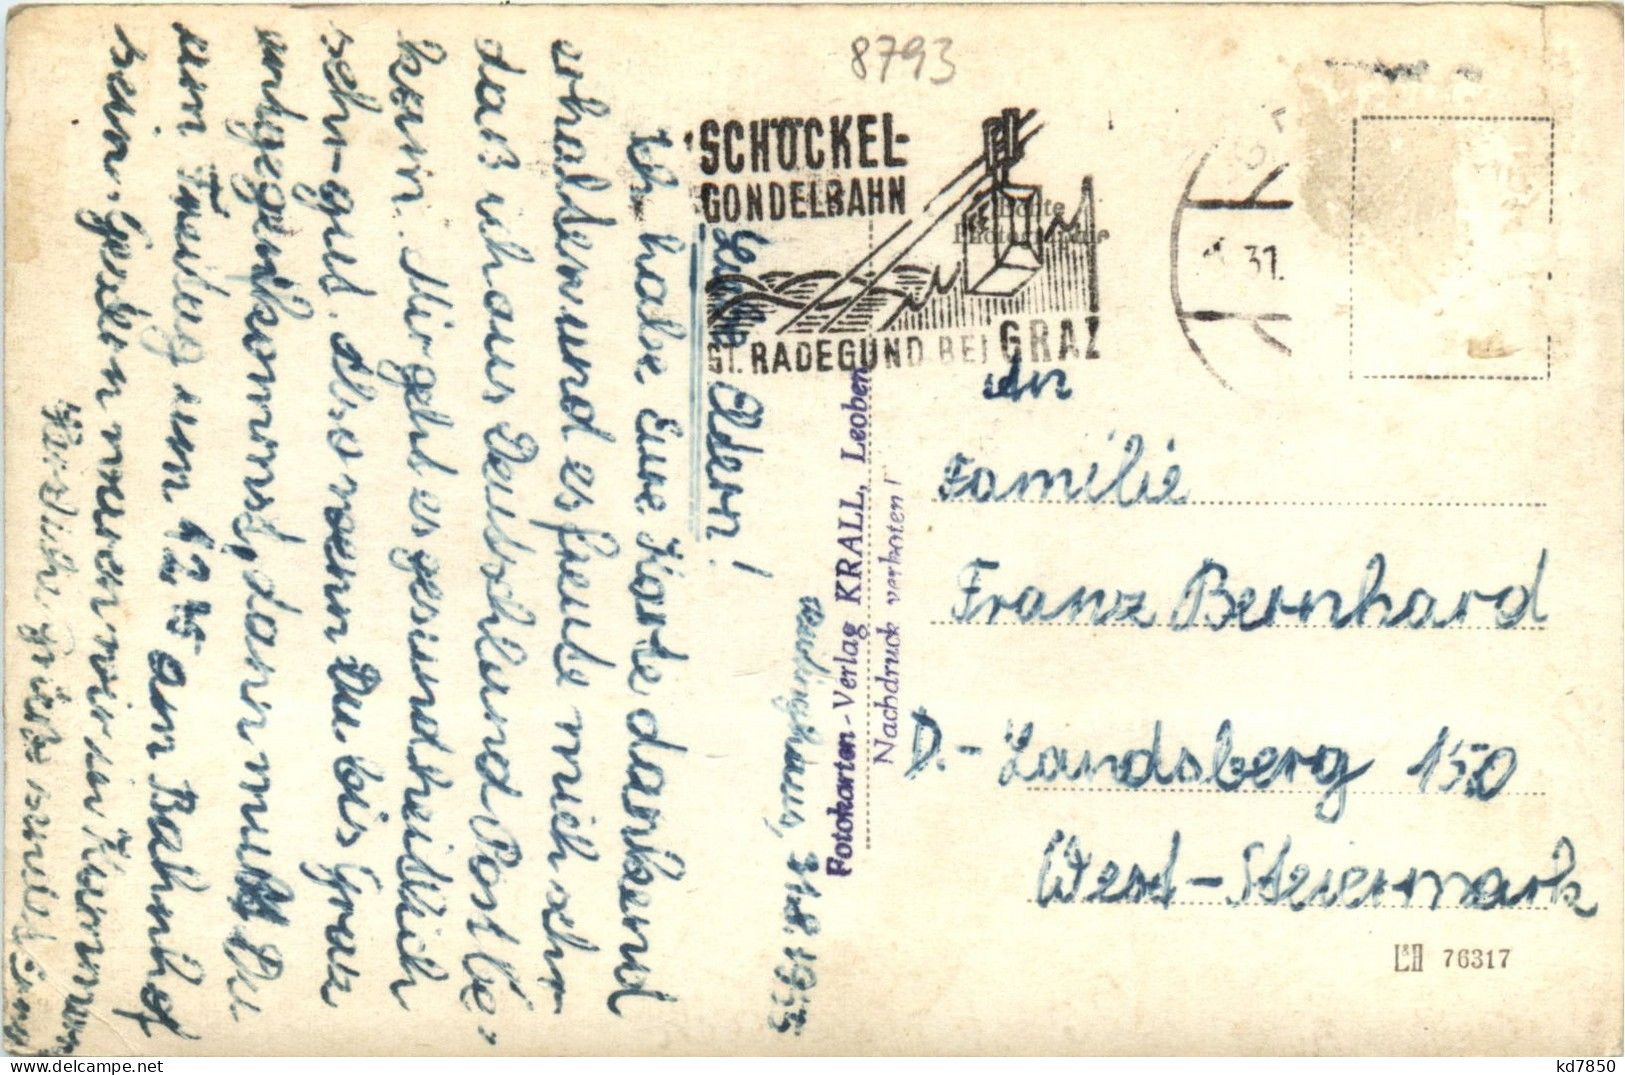 8793
SCHÖCKEL-
GONDELBAHN
ST. RADEGUND BEI GRAZ
Echte
31.
31.8.1955
Liebe Eltern!
Ich habe Eure Karte dankend
erhalten und es freute mich sehr
daß ich aus Deutschland Post be-
kam. Mir geht es gesundheitlich
sehr gut. Also wenn Du bis Graz
entgegenkommst, dann mußt Du
am Freitag um 12 15 am Bahnhof
sein. Gestern waren wir in
Herzliche Grüße sendet
An
Familie
Franz Bernhard
D.-Landsberg 150
West-Steiermark
Fotokarten-Verlag KRALL, Leoben
Nachdruck verboten!
76317
kd7850